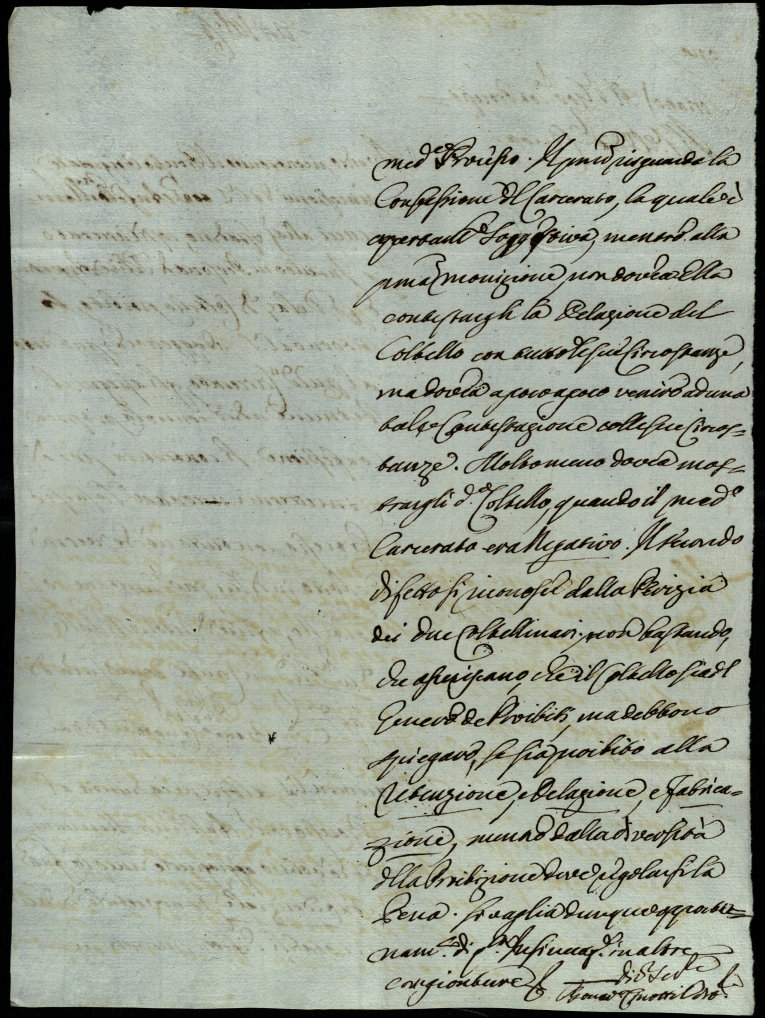 med.º Processo. Il primo risguarda la
Confessione del Carcerato, la quale è
apertam.e Soggestiva, mentre alla
prima monizione non dovea Ella
contestargli la Delazione del
Coltello con tutte le sue Circostanze,
ma dovea a poco a poco venire ad una
tale Contestazione colle sue Circos=
tanze. Molto meno dovea mos=
trargli d.º Coltello, quando il med.º
Carcerato era Negativo. Il secondo
difetto si rimonosce dalla Perizia
dei due Coltellinari, non bastando,
che asseriscano, che il Coltello sia del
Genere de Proibiti, ma debbono
spiegare, se sia proibito alla
Retenzione, e Delazione, e Fabrica=
zione, mentre dalla diversità
della Proibizione deve regolarsi la
Pena. Si vaglia dunque opportu=
nam.e di in altre
congionture